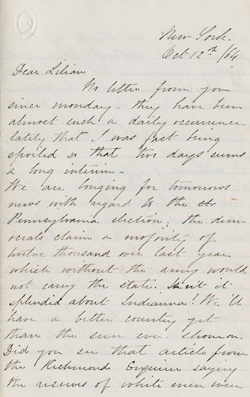 New York.
Oct 12th /64
Dear Lilian
No letter from you
since monday - they have been
almost such a daily occurrence
lately that I was fast being
spoiled so that two days seems
a long interim -
We are longing for tomorrows
news with regard to the
Pennsylvania election; the dem
ocrats claim a majority of
twelve thousand over last year
which without the army would
not carry the state. Isn't it
splendid about Indiana! We'll
have a better country yet
than the sun ever shone on.
Did you see that article from
the Richmond Enquirer saying
the reserves of white men were